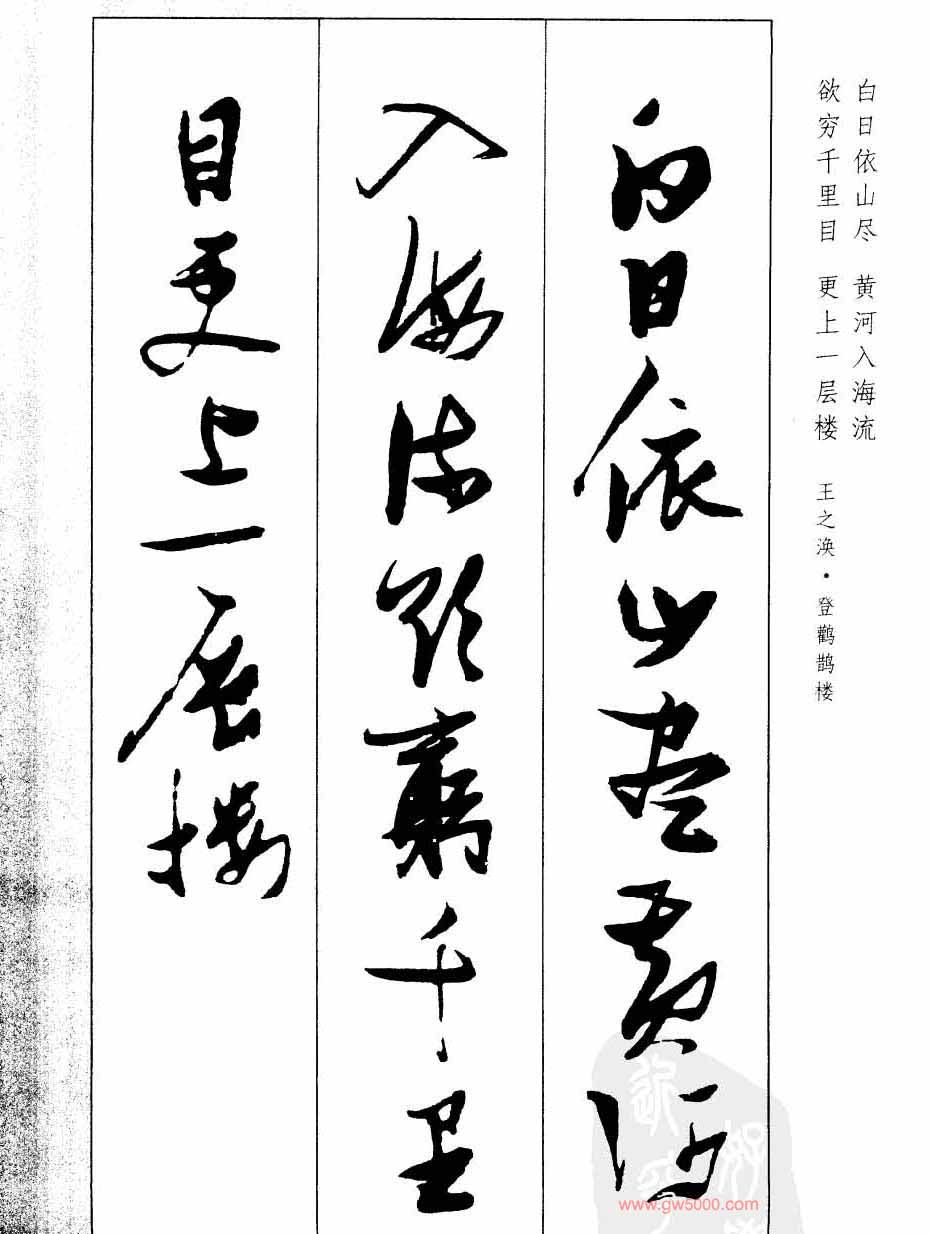 白日依山尽 黄河入海流
欲穷千里目 更上一层楼 王之涣·登鹳鹊楼
白日依山盡黄河
入海流欲窮千里
目更上一層樓
www.gw5000.com